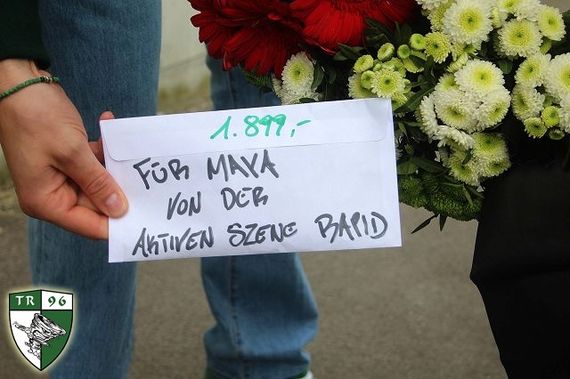 1.899,-
FÜR MAYA
VON DER
AKTIVEN SZENE RAPID
TR 96